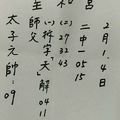 2月1.4日
二中一05 15
(二) 27 32 43
(一)(拆字「天」解04 11
師父
太子元帥:09